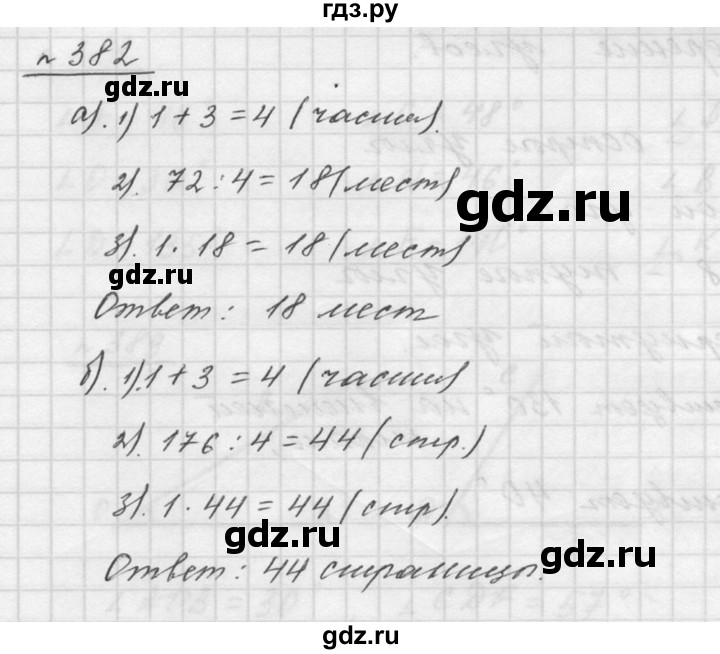 гдз.ру
№ 382
gdz.ru
а). 1) 1 + 3 = 4 (части).
2). 72 : 4 = 18 (мест)
gdz.ru
3). 1 · 18 = 18 (мест)
gdz.ru
Ответ: 18 мест
б). 1). 1 + 3 = 4 (части)
2). 176 : 4 = 44 (стр.)
3). 1 · 44 = 44 (стр).
gdz.ru
gdz.ru
Ответ: 44 страницы.
gdz.ru